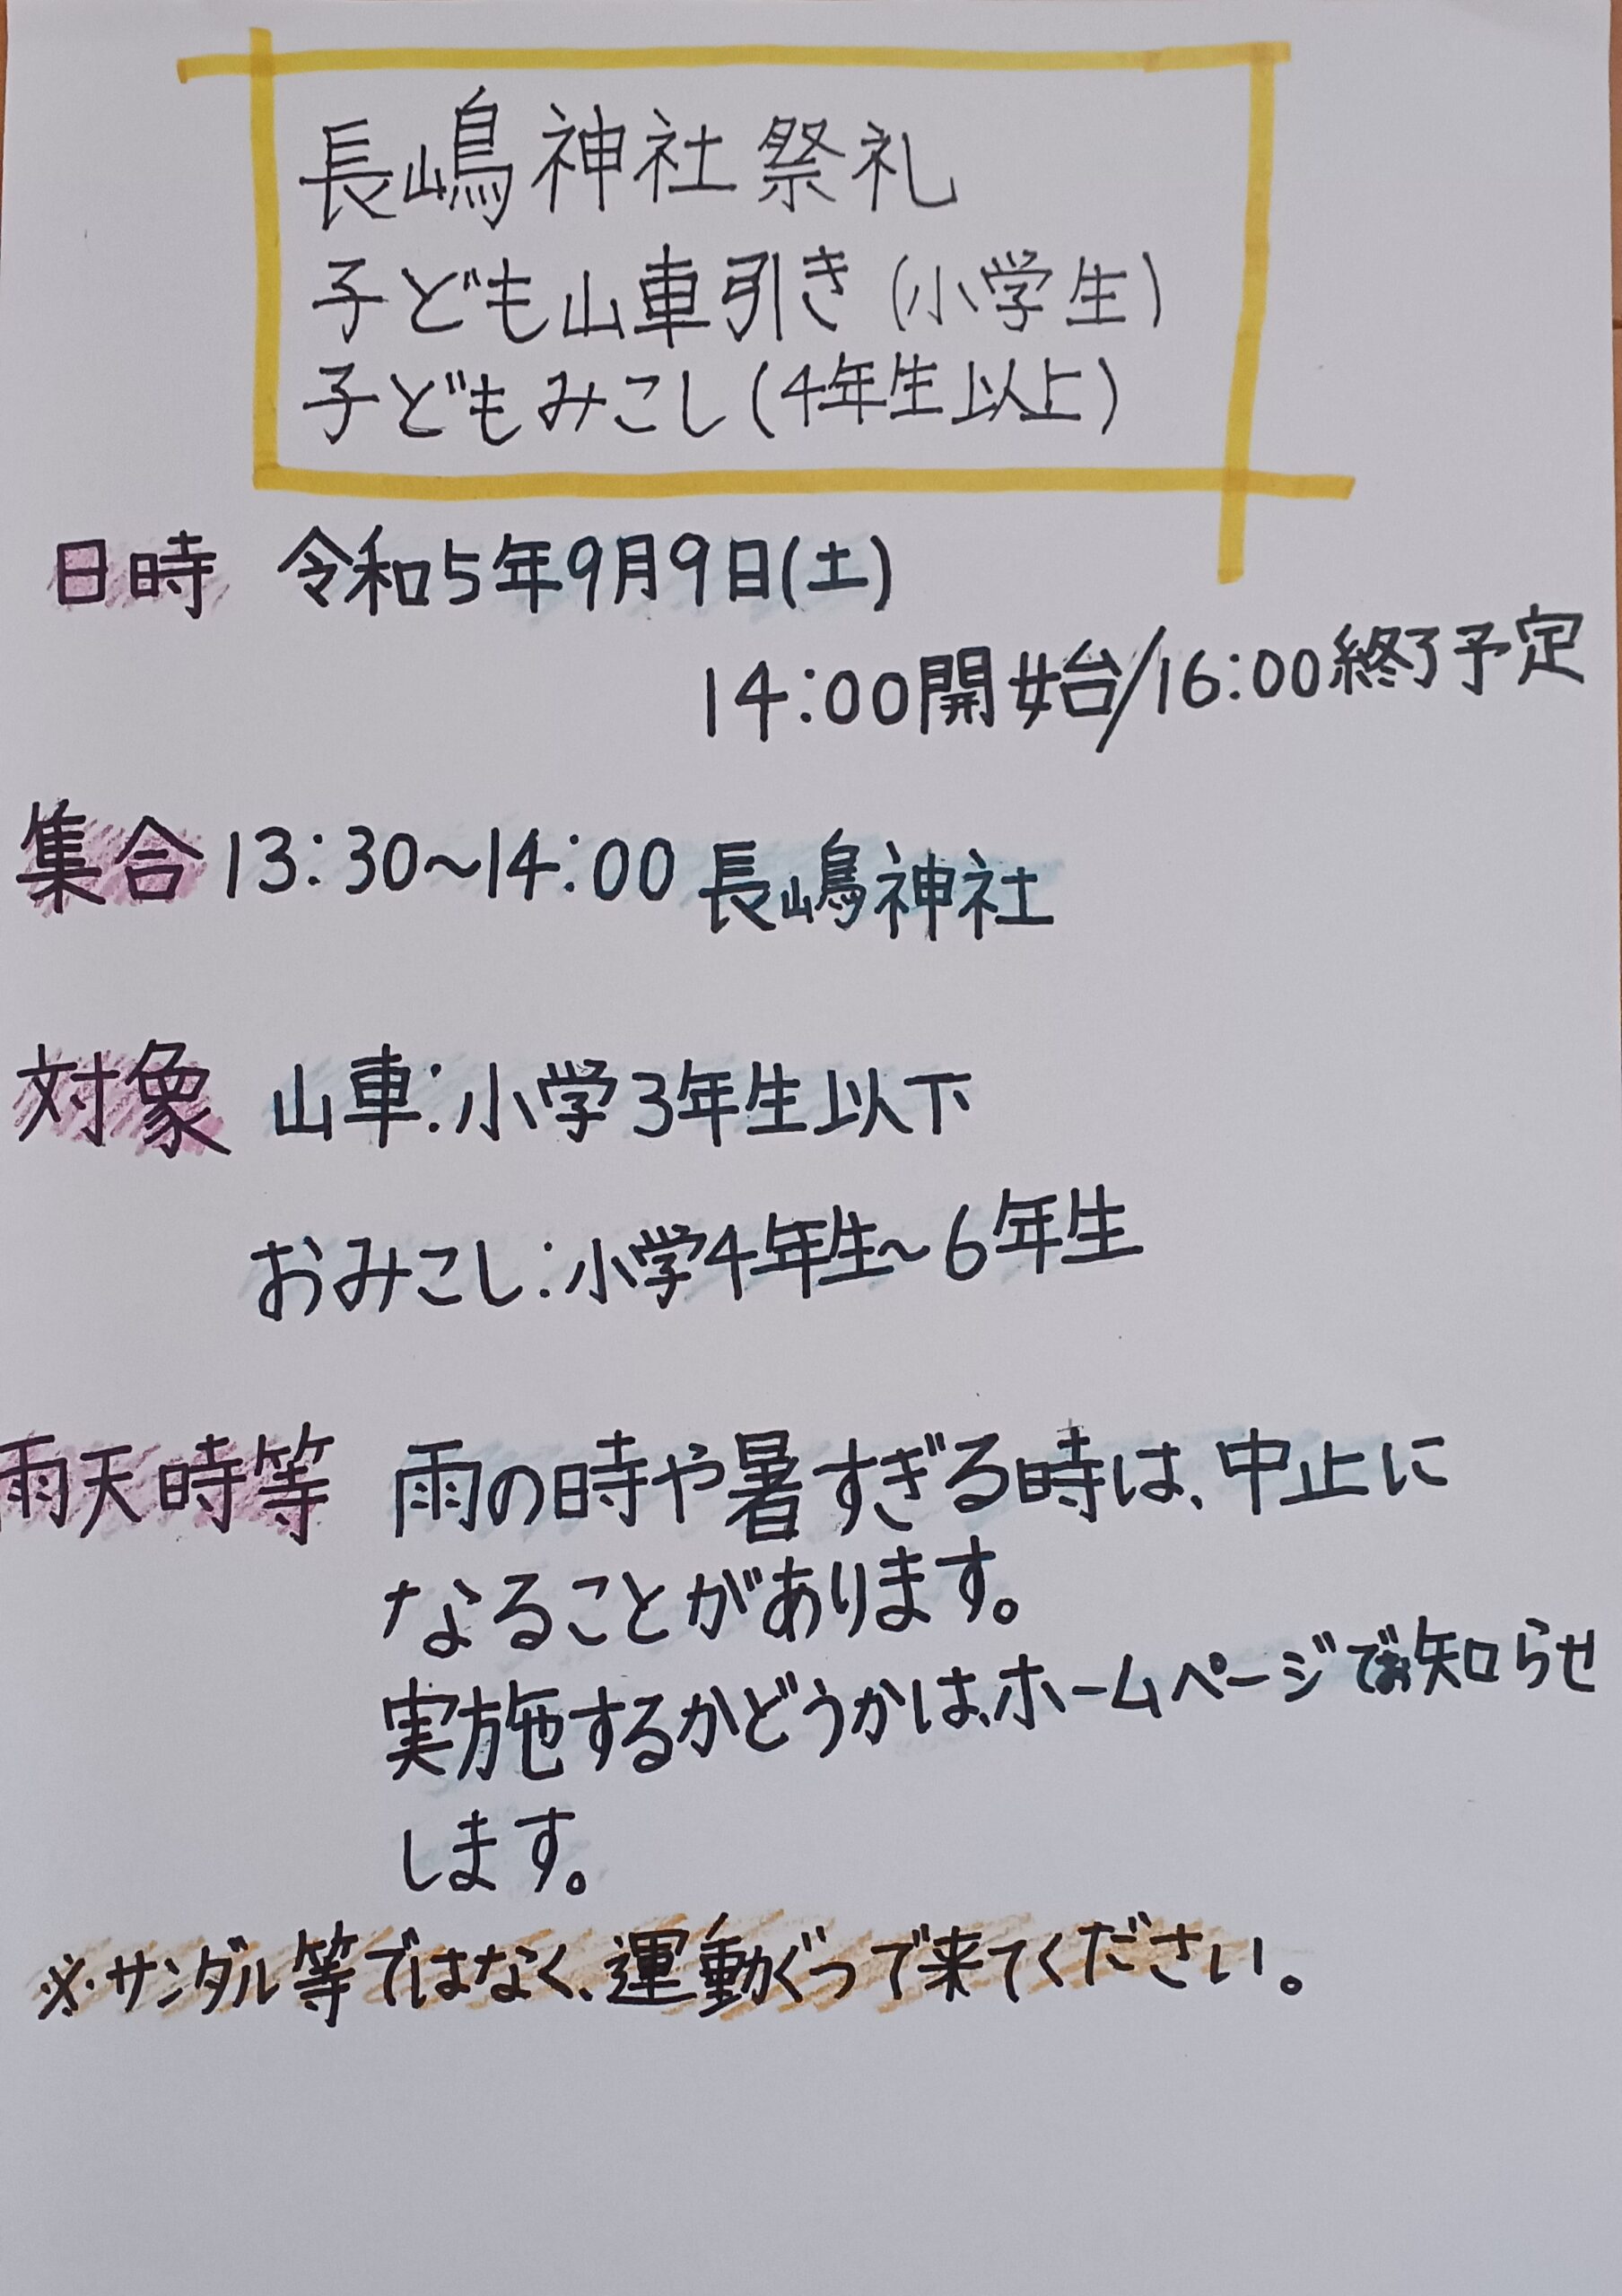 長嶋神社祭礼
子ども山車引き(小学生)
子どもみこし(4年生以上)
日時 令和5年9月9日(土)
14:00開始/16:00終了予定
集合 13:30～14:00 長嶋神社
対象 山車:小学3年生以下
おみこし:小学4年生～6年生
雨天時等 雨の時や暑すぎる時は、中止に
なることがあります。
実施するかどうかは、ホームページでお知らせ
します。
※サンダル等ではなく、運動ぐつで来てください。